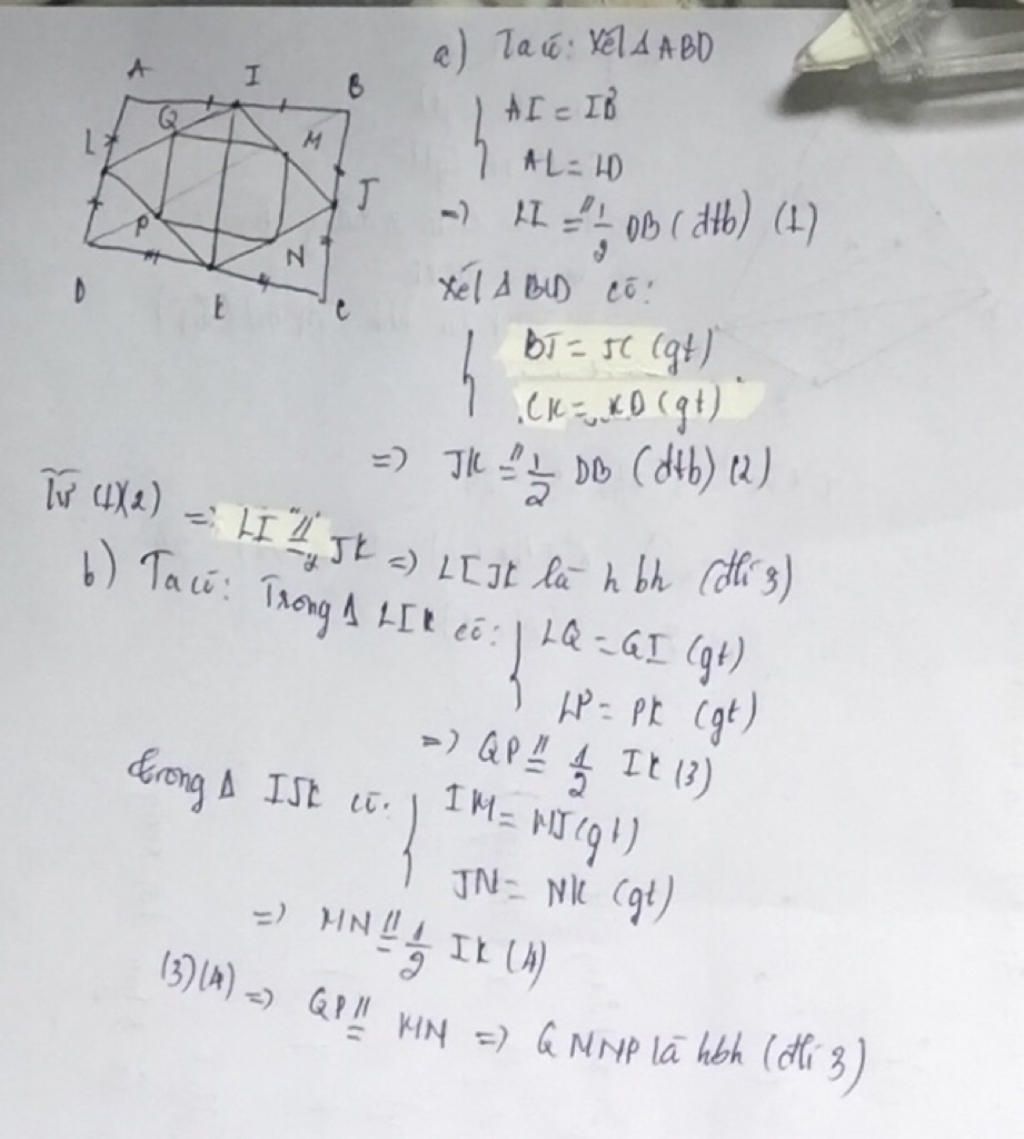 A I B
L Q M J
P N
D K C
a) Ta có: Xét Δ ABD
{ AI = IB
AL = LD
=> LI =// 1/2 DB (đtb) (1)
Xét Δ BCD có:
{ BJ = JC (gt)
CK = KD (gt)
=> JK =// 1/2 DB (đtb) (2)
Từ (1)(2) => LI =// JK => LIJK là hbh (dh 3)
b) Ta có: Trong Δ LIK có: { LQ = QI (gt)
LP = PK (gt)
=> QP =// 1/2 IK (3)
trong Δ IJK có: { IM = MJ (gt)
JN = NK (gt)
=> MN =// 1/2 IK (4)
(3)(4) => QP =// MN => QMNP là hbh (dh 3)